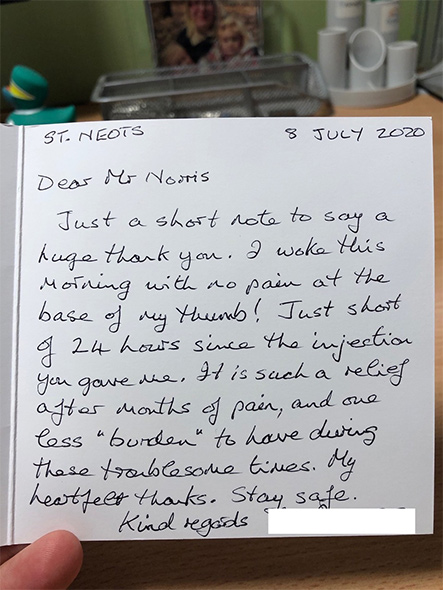 ST. NEOTS 8 JULY 2020
Dear Mr Norris
Just a short note to say a
huge thank you. I woke this
morning with no pain at the
base of my thumb! Just short
of 24 hours since the injection
you gave me. It is such a relief
after months of pain, and one
less "burden" to have during
these troublesome times. My
heartfelt thanks. Stay safe.
Kind regards